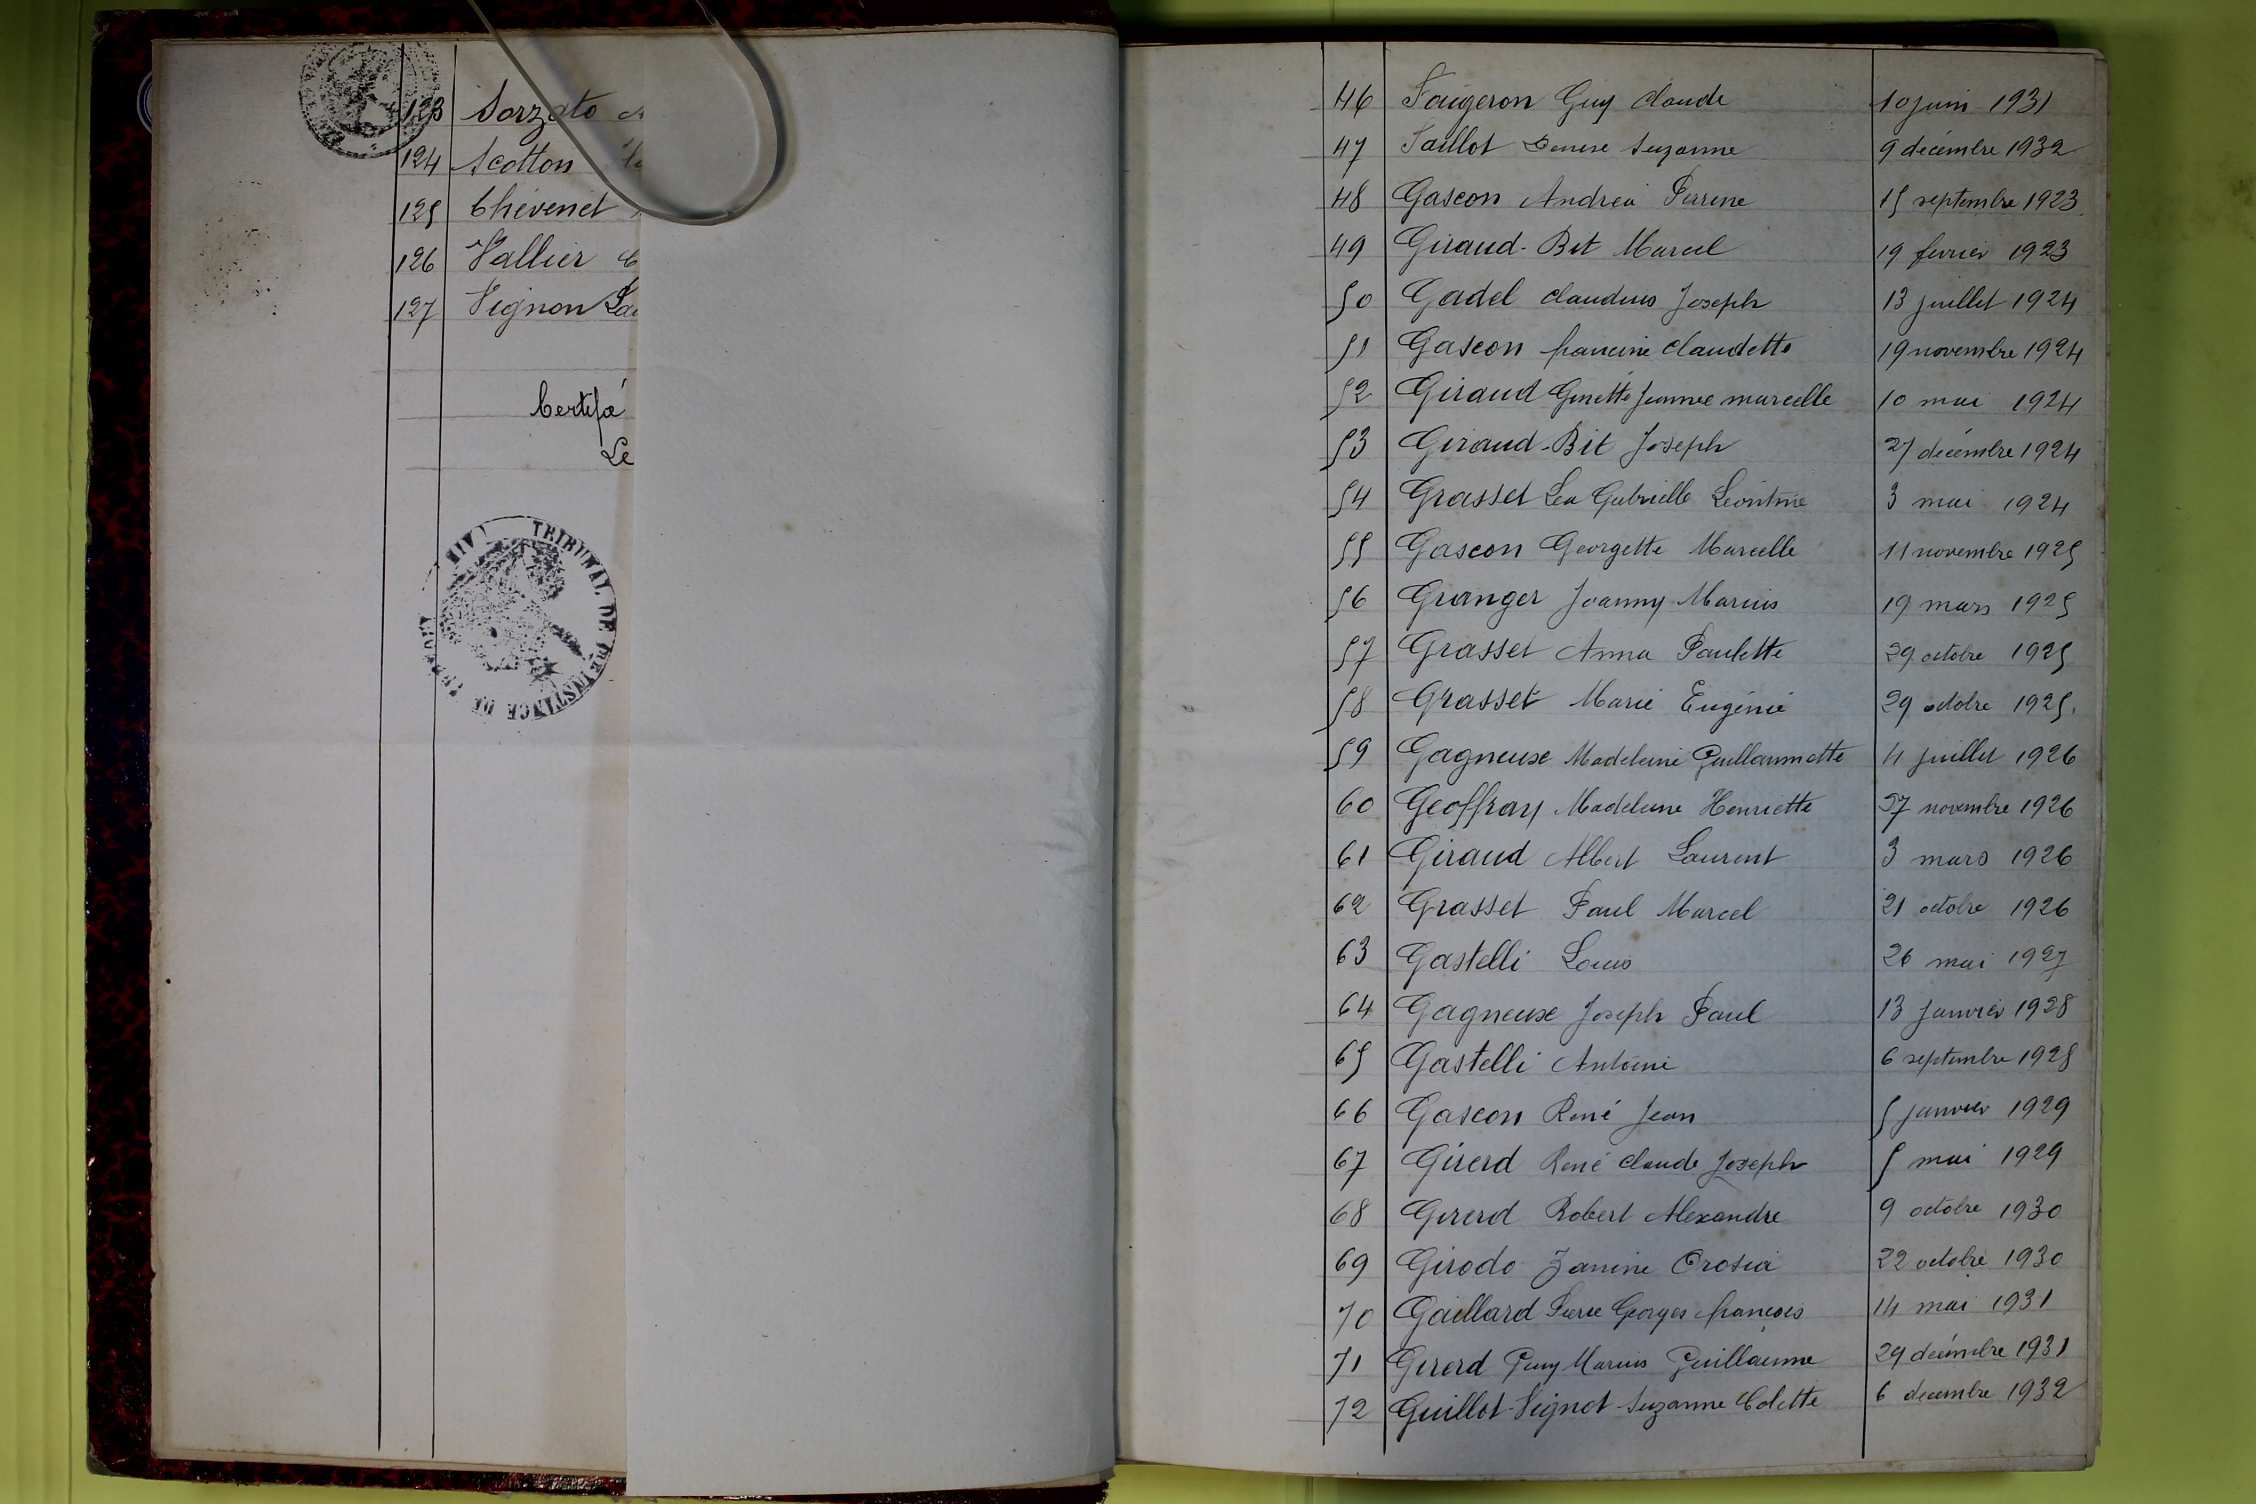 123 Sarzato
124 Scotton
125 Chévenet
126 Vallier
127 Vignon
Certifié
Le
TRIBUNAL DE 1RE INSTANCE DE
46 Faugeron Guy Claude 10 juin 1931
47 Faillot Denise Suzanne 9 décembre 1932
48 Gascon Andréa Perrine 15 septembre 1923
49 Giraud-Bit Marcel 19 fevrier 1923
50 Gadel Claudius Joseph 13 juillet 1924
51 Gascon francine Claudette 19 novembre 1924
52 Giraud Ginette Jeanne marcelle 10 mai 1924
53 Giraud-Bit Joseph 27 décembre 1924
54 Grasset Léa Gabrielle Léontine 3 mai 1924
55 Gascon Georgette Marcelle 11 novembre 1925
56 Granger Joanny Marius 19 mars 1925
57 Grasset Anna Paulette 29 octobre 1925
58 Grasset Marie Eugénie 29 octobre 1925.
59 Gagneuse Madeleine Guillaumette 4 juillet 1926
60 Geoffray Madeleine Henriette 27 novembre 1926
61 Giraud Albert Laurent 3 mars 1926
62 Grasset Paul Marcel 21 octobre 1926
63 Gastelli Louis 26 mai 1927
64 Gagneuse Joseph Paul 13 Janvier 1928
65 Gastelli Antoine 6 septembre 1928
66 Gascon René Jean 5 janvier 1929
67 Girerd René Claude Joseph 5 mai 1929
68 Girerd Robert Alexandre 9 octobre 1930
69 Girodo Janine Orosia 22 octobre 1930
70 Gaillard Pierre Georges françois 14 mai 1931
71 Girerd Guy Marius Guillaume 29 décembre 1931
72 Guillot-Vignot Suzanne Colette 6 decembre 1932